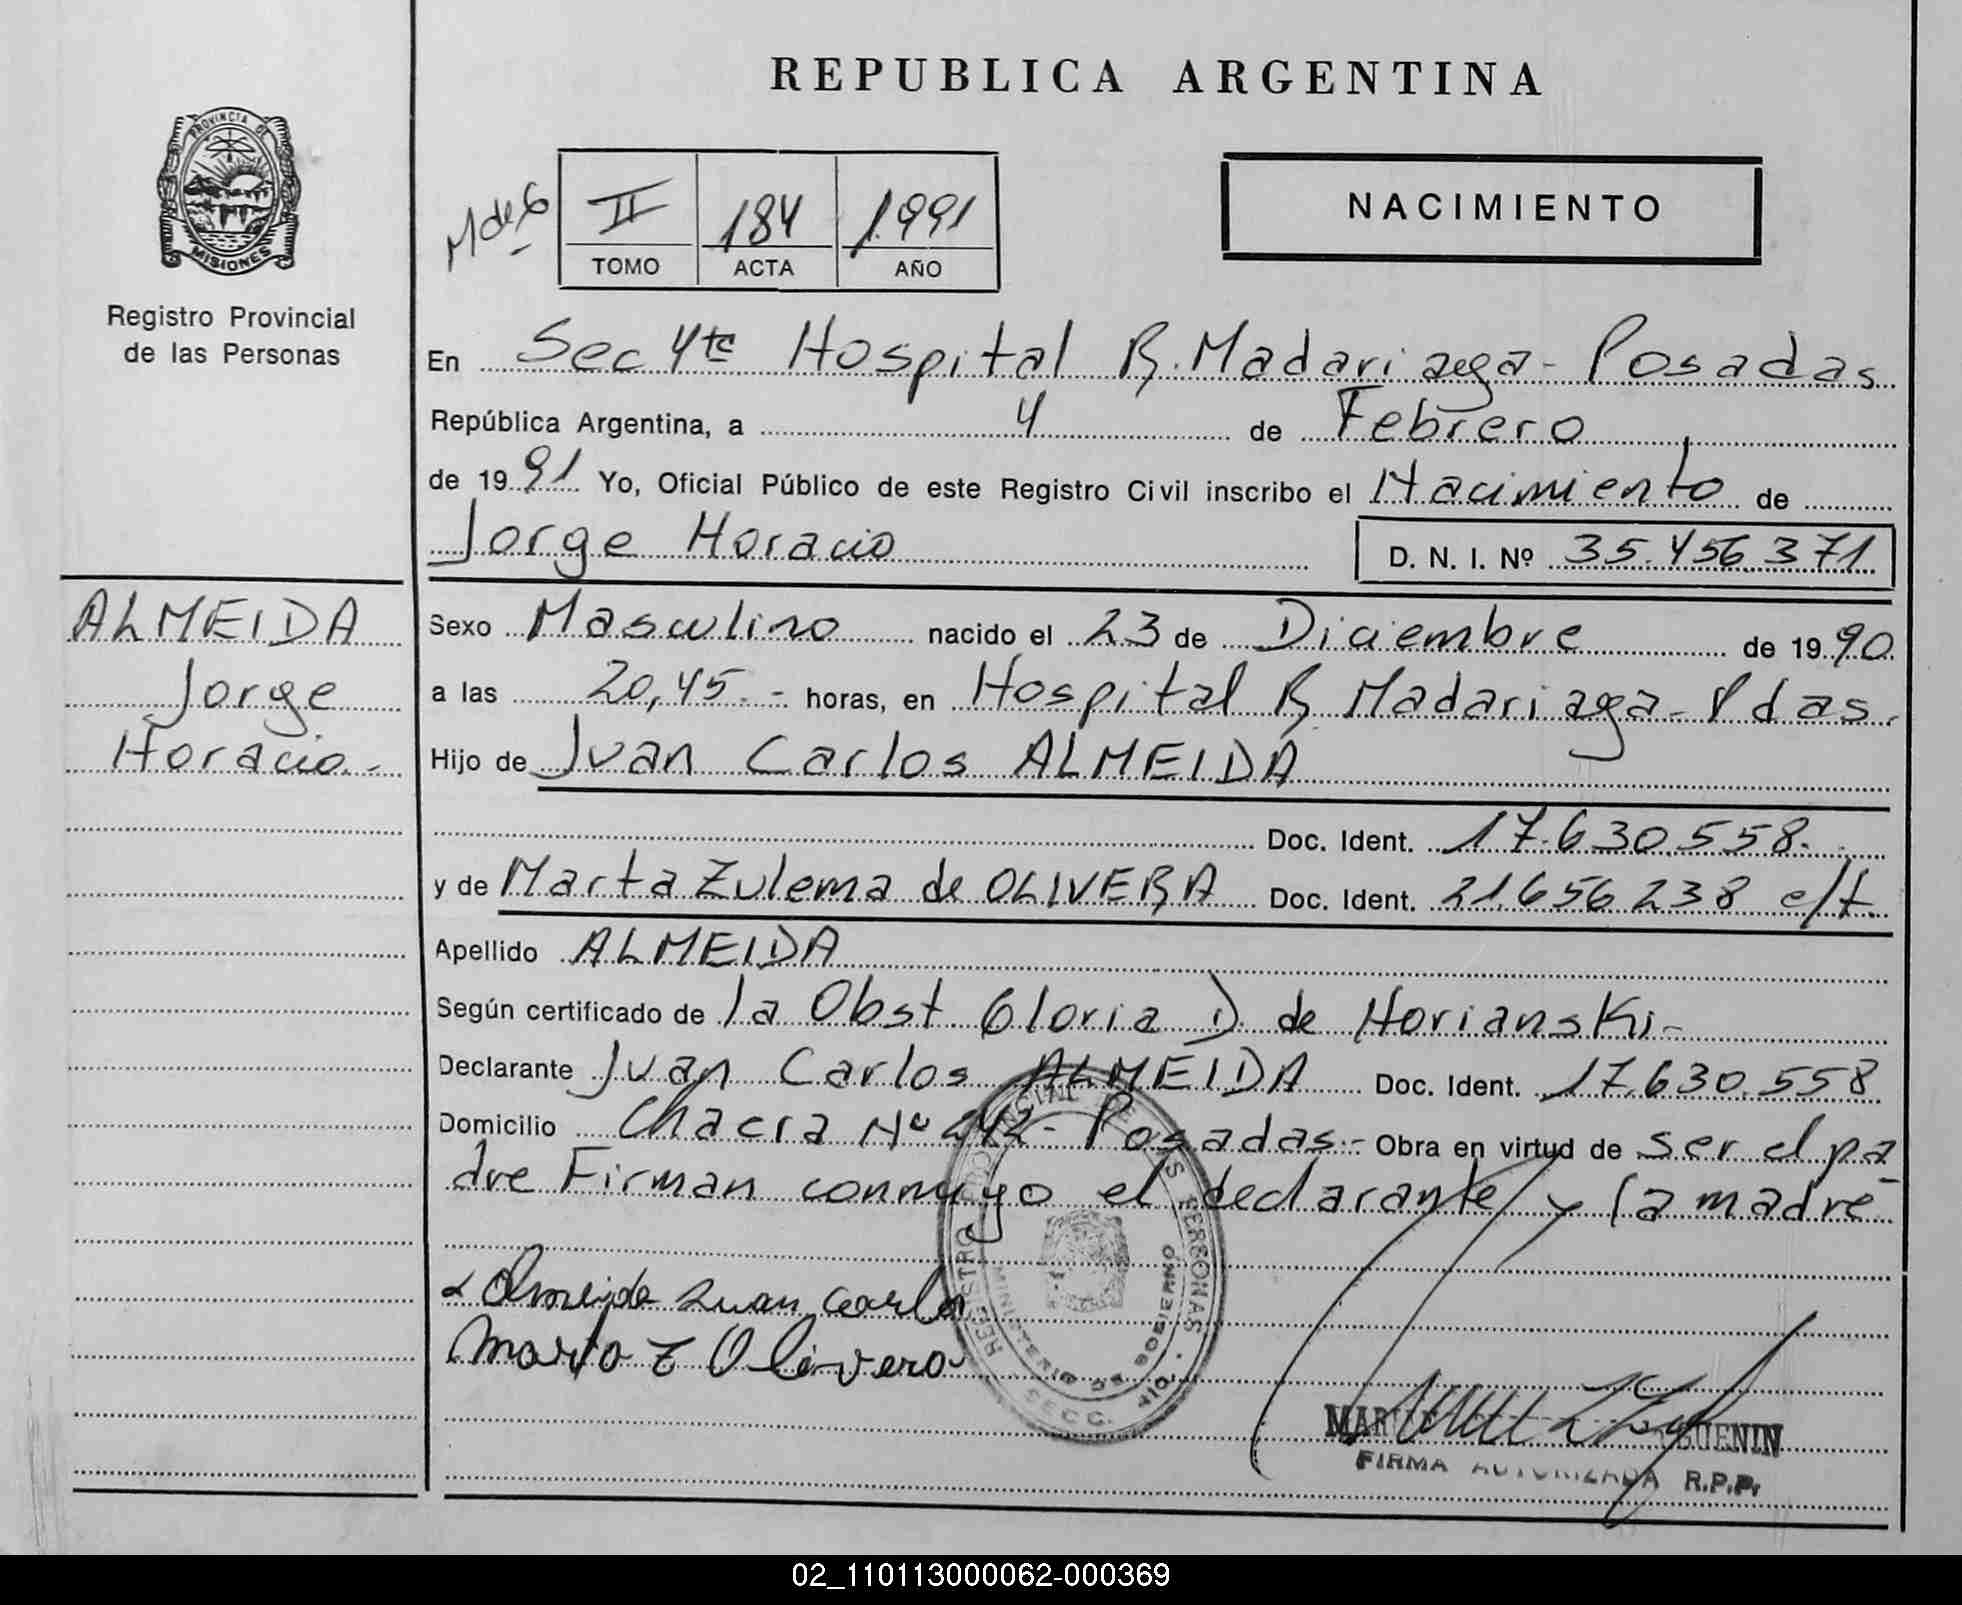 REPUBLICA ARGENTINA
PROVINCIA DE
MISIONES
Registro Provincial
de las Personas
M de G
II 184 1.991
TOMO ACTA AÑO
NACIMIENTO
En Sec 4ta Hospital R. Madariaga - Posadas
República Argentina, a 4 de Febrero
de 1991 Yo, Oficial Público de este Registro Civil inscribo el Nacimiento de
Jorge Horacio D. N. I. Nº 35.456.371
ALMEIDA
Jorge
Horacio.-
Sexo Masculino nacido el 23 de Diciembre de 1990
a las 20,45.- horas, en Hospital R Madariaga - Pdas.
Hijo de Juan Carlos ALMEIDA
Doc. Ident. 17.630.558.
y de Marta Zulema de OLIVERA Doc. Ident. 21.656.238 c/t.
Apellido ALMEIDA
Según certificado de la Obst Gloria D. de Horianski-
Declarante Juan Carlos ALMEIDA Doc. Ident. 17.630.558
Domicilio Chacra Nº 242 - Posadas.- Obra en virtud de ser el pa
dre Firman conmigo el declarante y la madre
Almeida Juan Carlo
Marta Z Olivera
REGISTRO PROVINCIAL DE LAS PERSONAS
MINISTERIO DE GOBIERNO
SECC.
GUENIN
FIRMA AUTORIZADA R.P.P.
02_110113000062-000369